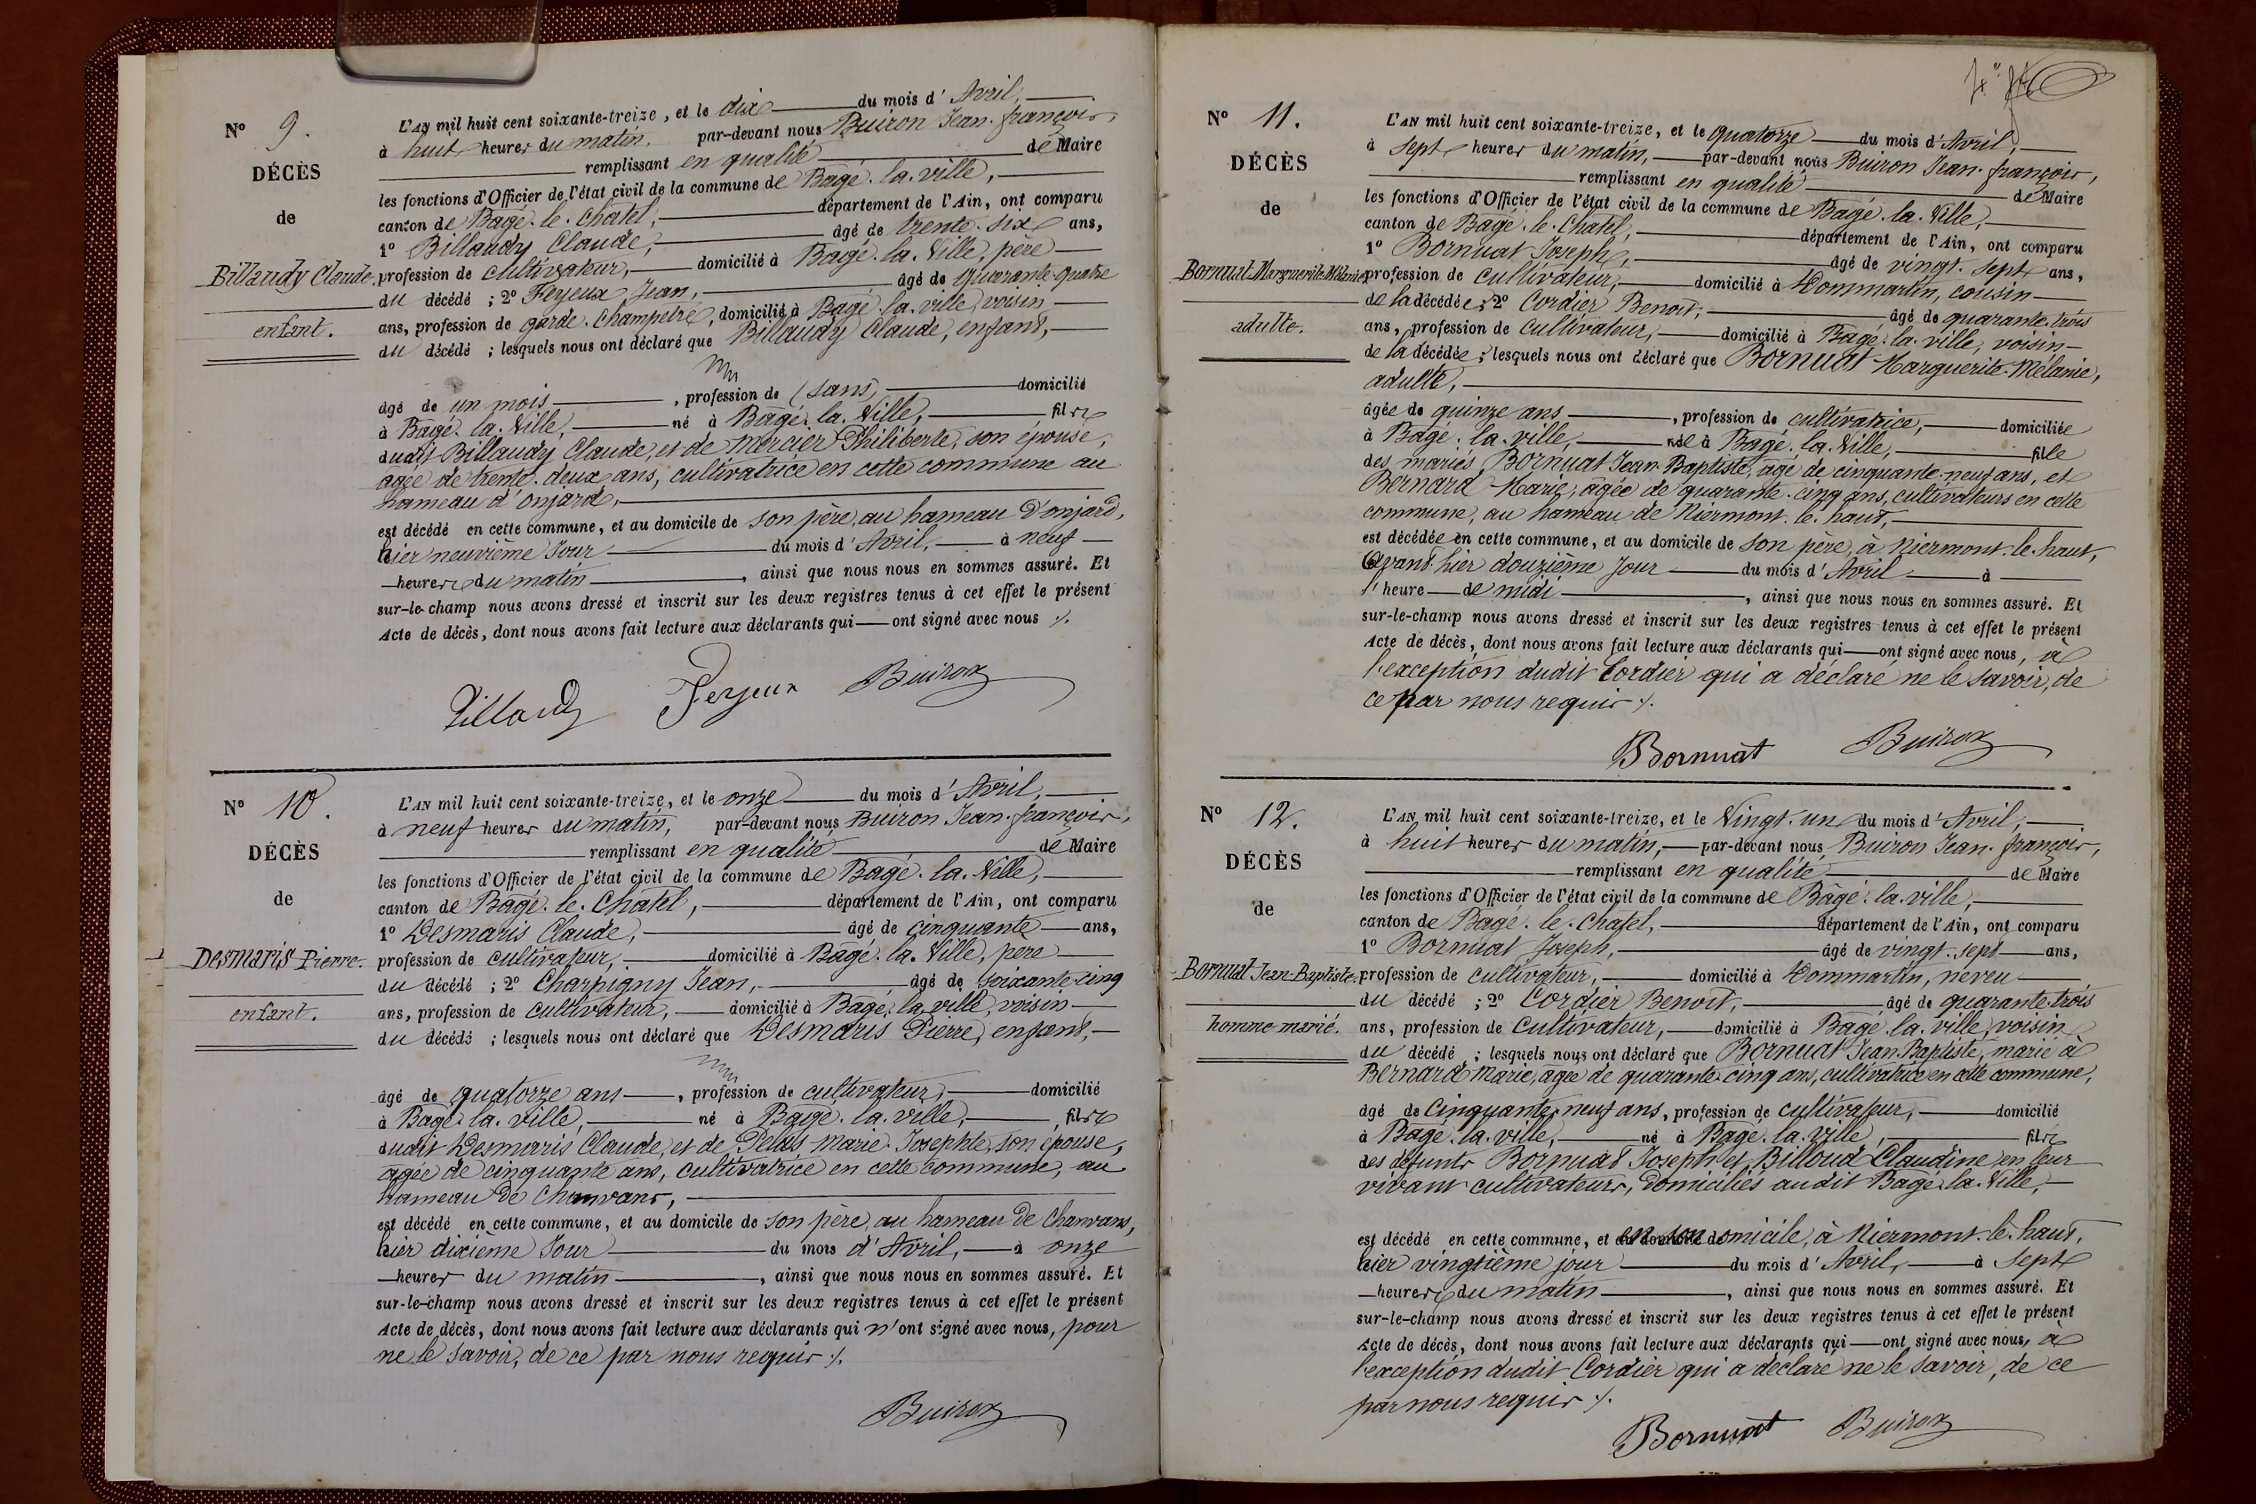 Nº 9.
DÉCÈS
de
Billaudy Claude.
enfant.
L'AN mil huit cent soixante-treize, et le dix du mois d'Avril,
à huit heures du matin, par-devant nous Buiron Jean-françois,
remplissant en qualité de Maire
les fonctions d'Officier de l'état civil de la commune de Bâgé-la-ville,
canton de Bâgé-le-Chatel, département de l'Ain, ont comparu
1º Billaudy Claude, âgé de trente-six ans,
profession de cultivateur, domicilié à Bâgé-la-Ville, père
du décédé ; 2º Ferjeux Jean, âgé de quarante-quatre
ans, profession de garde-champetre, domicilié à Bâgé-la-ville, voisin
du décédé ; lesquels nous ont déclaré que Billaudy Claude, enfant,
âgé de un mois, profession de (sans), domicilié
à Bâgé-la-Ville, né à Bâgé-la-Ville, fils
dudit Billaudy Claude, et de Mercier Philiberte, son épouse,
agée de trente-deux ans, cultivatrice en cette commune au
hameau d'onjard,
est décédé en cette commune, et au domicile de son père, au hameau d'onjard,
hier neuvième Jour du mois d'Avril, à neuf
heures du matin, ainsi que nous nous en sommes assuré. Et
sur-le-champ nous avons dressé et inscrit sur les deux registres tenus à cet effet le présent
Acte de décès, dont nous avons fait lecture aux déclarants qui ont signé avec nous ./.
Billaudy Ferjeux Buiron
Nº 10.
DÉCÈS
de
Desmaris Pierre.
enfant.
L'AN mil huit cent soixante-treize, et le onze du mois d'Avril,
à neuf heures du matin, par-devant nous Buiron Jean-françois,
remplissant en qualité de Maire
les fonctions d'Officier de l'état civil de la commune de Bâgé-la-Ville,
canton de Bâgé-le-Chatel, département de l'Ain, ont comparu
1º Desmaris Claude, âgé de cinquante ans,
profession de cultivateur, domicilié à Bâgé-la-Ville, père
du décédé ; 2º Charpigny Jean, âgé de soixante-cinq
ans, profession de cultivateur, domicilié à Bâgé-la-ville, voisin
du décédé ; lesquels nous ont déclaré que Desmaris Pierre, enfant,
âgé de quatorze ans, profession de cultivateur, domicilié
à Bâgé-la-ville, né à Bâgé-la-ville, fils
dudit Desmaris Claude, et de Marie-Josephte, son épouse,
agée de cinquante ans, cultivatrice en cette commune, au
hameau de Chanvans,
est décédé en cette commune, et au domicile de son père, au hameau de Chanvans,
hier dixième Jour du mois d'Avril, à onze
heures du matin, ainsi que nous nous en sommes assuré. Et
sur-le-champ nous avons dressé et inscrit sur les deux registres tenus à cet effet le présent
Acte de décès, dont nous avons fait lecture aux déclarants qui n'ont signé avec nous, pour
ne le savoir, de ce par nous requis ./.
Buiron
Nº 11.
DÉCÈS
de
Bornuat Marguerite Mélanie
adulte.
L'AN mil huit cent soixante-treize, et le quatorze du mois d'Avril,
à sept heures du matin, par-devant nous Buiron Jean-françois,
remplissant en qualité de Maire
les fonctions d'Officier de l'état civil de la commune de Bâgé-la-Ville,
canton de Bâgé-le-Chatel, département de l'Ain, ont comparu
1º Bornuat Joseph, âgé de vingt-sept ans,
profession de cultivateur, domicilié à Dommartin, cousin
de la décédée ; 2º Cordier Benoit, âgé de quarante-trois
ans, profession de cultivateur, domicilié à Bâgé-la-ville, voisin
de la décédée ; lesquels nous ont déclaré que Bornuat Marguerite-Mélanie,
adulte,
âgée de quinze ans, profession de cultivatrice, domiciliée
à Bâgé-la-ville, née à Bâgé-la-Ville, fille
des mariés Bornuat Jean-Baptiste, âgé de cinquante-neuf ans, et
Bernard Marie, âgée de quarante-cinq ans, cultivateurs en cette
commune, au hameau de Niermont-le-haut,
est décédée en cette commune, et au domicile de son père, à Niermont-le-haut,
avant-hier douzième Jour du mois d'Avril à
l'heure de midi, ainsi que nous nous en sommes assuré. Et
sur-le-champ nous avons dressé et inscrit sur les deux registres tenus à cet effet le présent
Acte de décès, dont nous avons fait lecture aux déclarants qui ont signé avec nous, à
l'exception dudit Cordier qui a déclaré ne le savoir, de
ce par nous requis ./.
Bornuat Buiron
Nº 12.
DÉCÈS
de
Bornuat Jean-Baptiste.
homme marié.
L'AN mil huit cent soixante-treize, et le Vingt-un du mois d'Avril,
à huit heures du matin, par-devant nous Buiron Jean-françois,
remplissant en qualité de Maire
les fonctions d'Officier de l'état civil de la commune de Bâgé-la-ville,
canton de Bâgé-le-Chatel, département de l'Ain, ont comparu
1º Bornuat Joseph, âgé de vingt-sept ans,
profession de cultivateur, domicilié à Dommartin, neveu
du décédé ; 2º Cordier Benoit, âgé de quarante-trois
ans, profession de cultivateur, domicilié à Bâgé-la-ville, voisin
du décédé ; lesquels nous ont déclaré que Bornuat Jean-Baptiste, marié à
Bernard Marie, âgée de quarante-cinq ans, cultivatrice en cette commune,
âgé de cinquante-neuf ans, profession de cultivateur, domicilié
à Bâgé-la-ville, né à Bâgé-la-ville, fils
des défunts Bornuat Joseph et Billoud Claudine en leur
vivant cultivateurs, domiciliés audit Bâgé-la-Ville,
est décédé en cette commune, et en son domicile, à Niermont-le-haut,
hier vingtième jour du mois d'Avril, à sept
heures du matin, ainsi que nous nous en sommes assuré. Et
sur-le-champ nous avons dressé et inscrit sur les deux registres tenus à cet effet le présent
Acte de décès, dont nous avons fait lecture aux déclarants qui ont signé avec nous, à
l'exception dudit Cordier qui a déclaré ne le savoir, de ce
par nous requis ./.
Bornuat Buiron